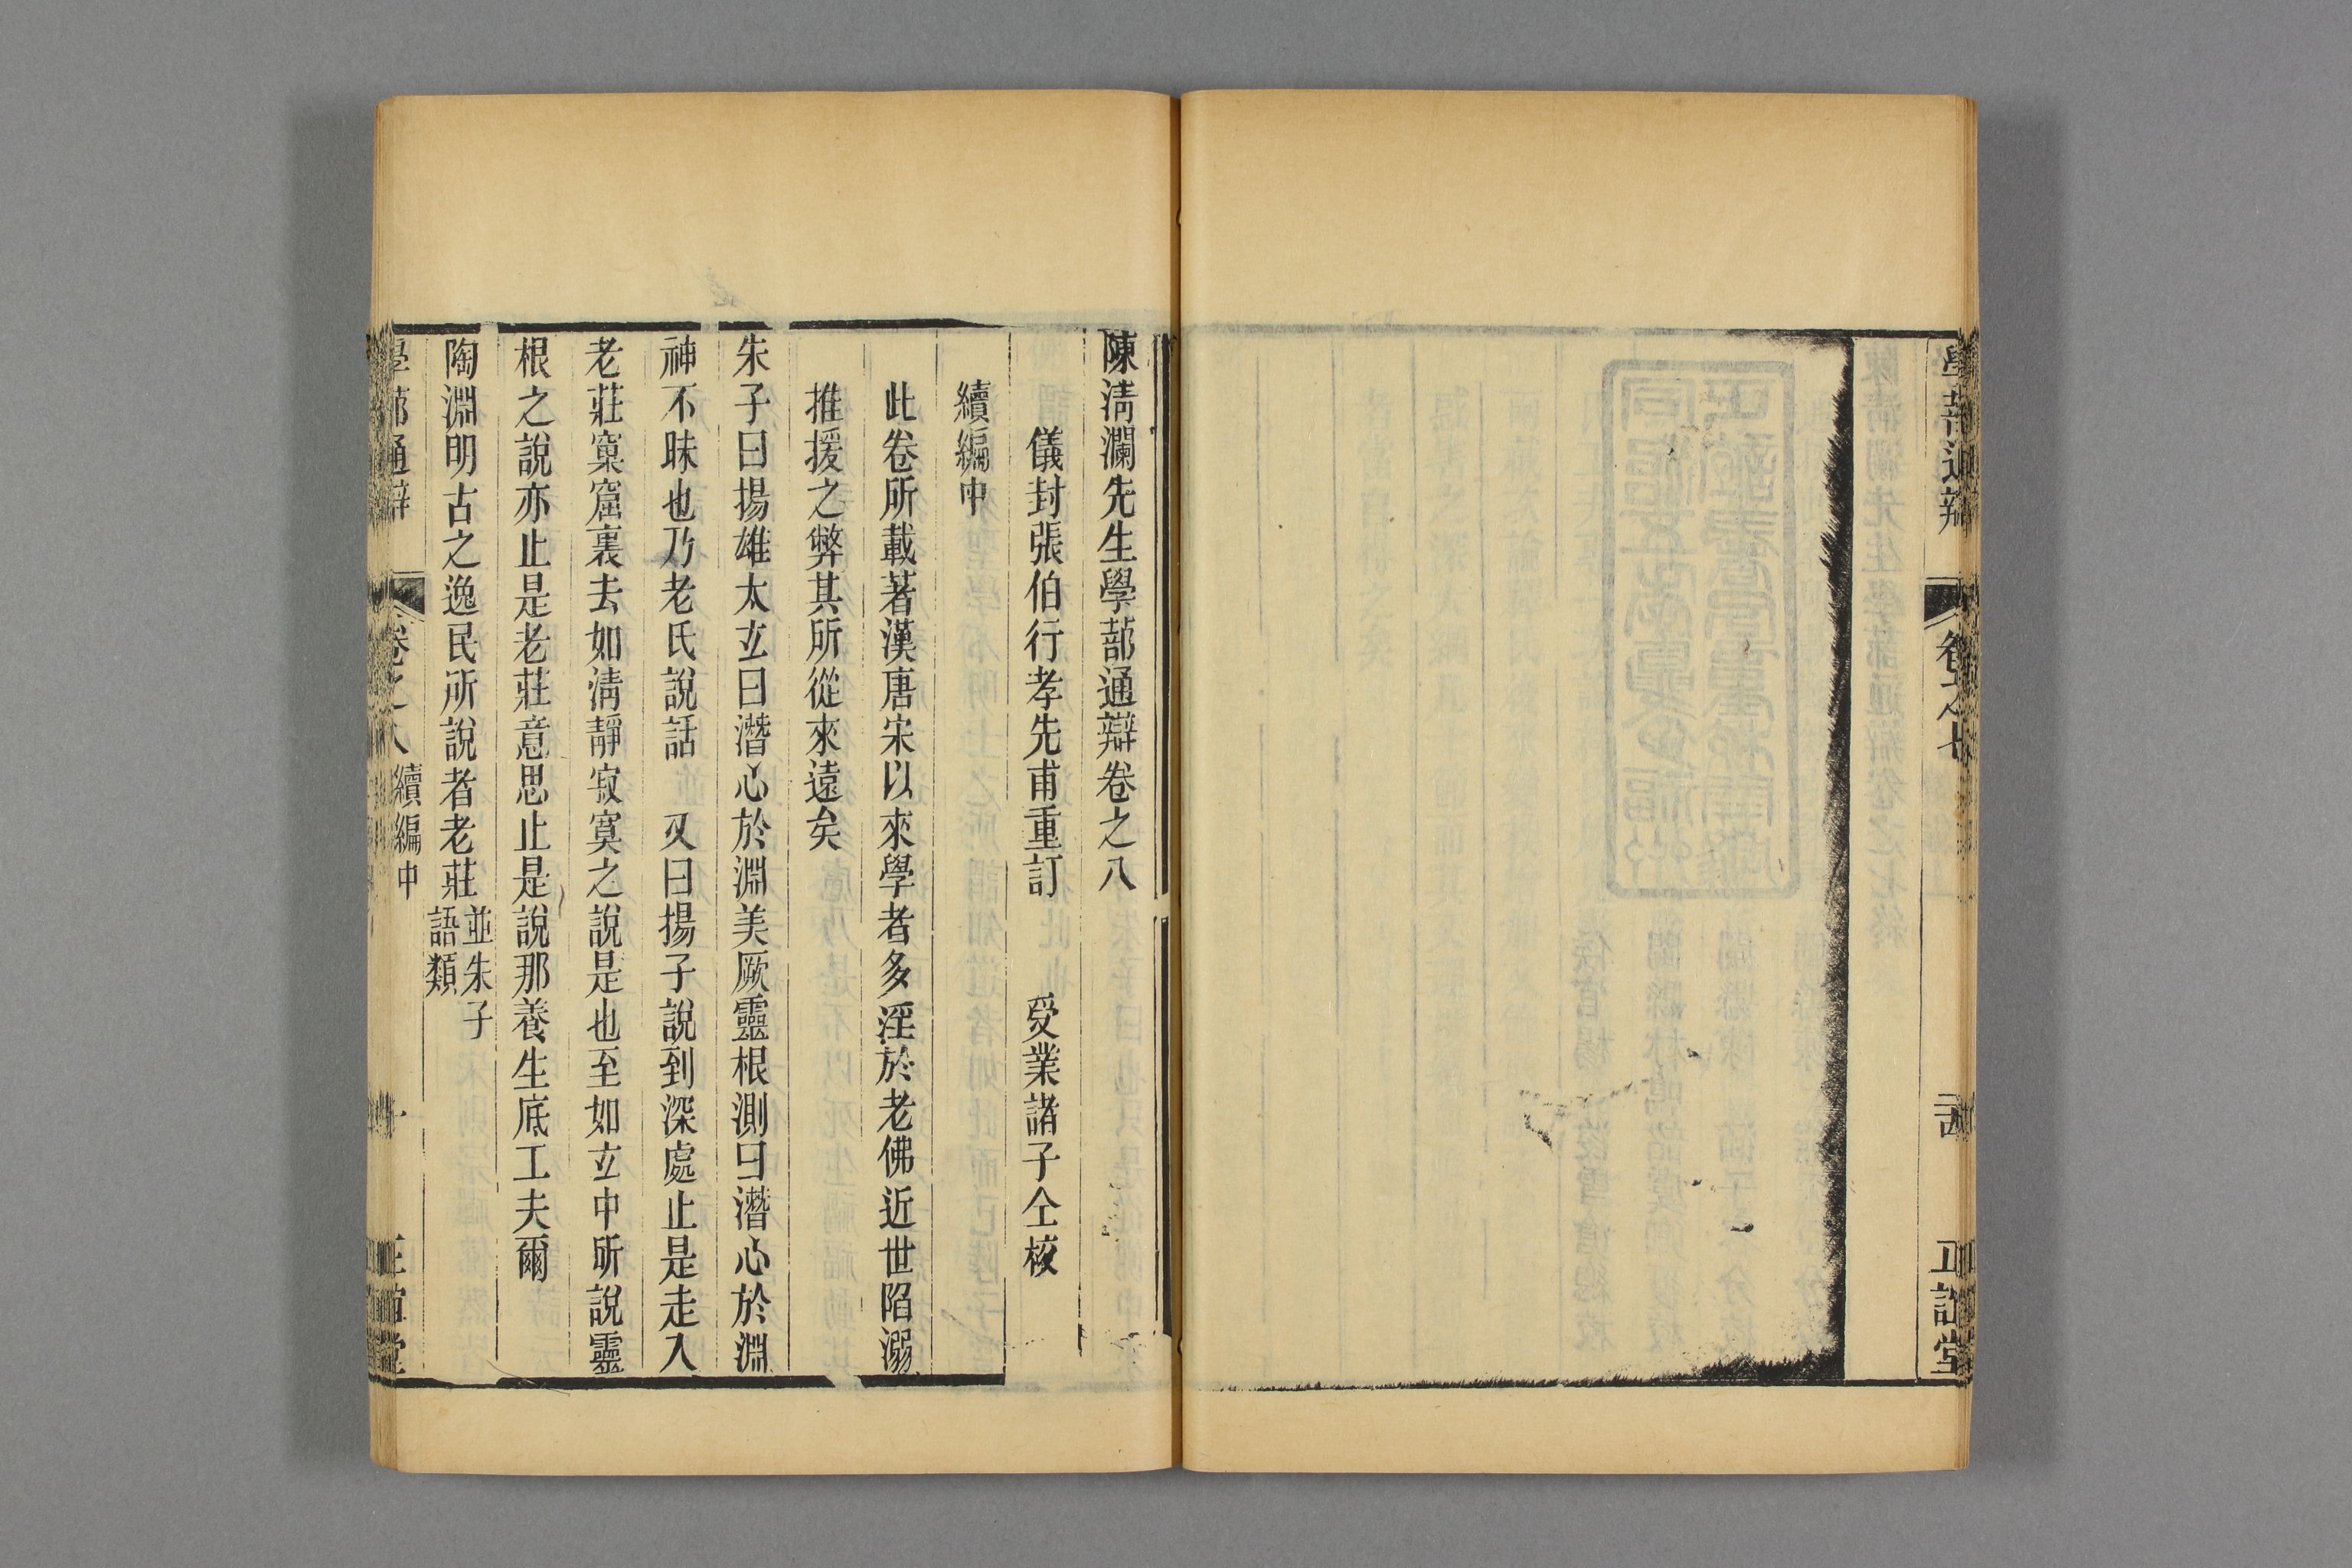 學蔀通辯
卷之七
正誼堂
陳淸瀾先生學蔀通辯卷之八
儀封張伯行孝先甫重訂 受業諸子仝校
續編中
此卷所載著漢唐宋以來學者多淫於老佛近世陷溺
推援之弊其所從來遠矣
朱子曰揚雄太𤣥曰潛心於淵美厥靈根測曰潛心於淵
神不昧也乃老氏說話 又曰揚子說到深處止是走入
老莊窠窟裏去如淸靜寂寞之說是也至如𤣥中所說靈
根之說亦止是老莊意思止是說那養生底工夫爾
陶淵明古之逸民所說者老莊並朱子語類
學蔀通辯 卷之八 續編中 一 正誼堂